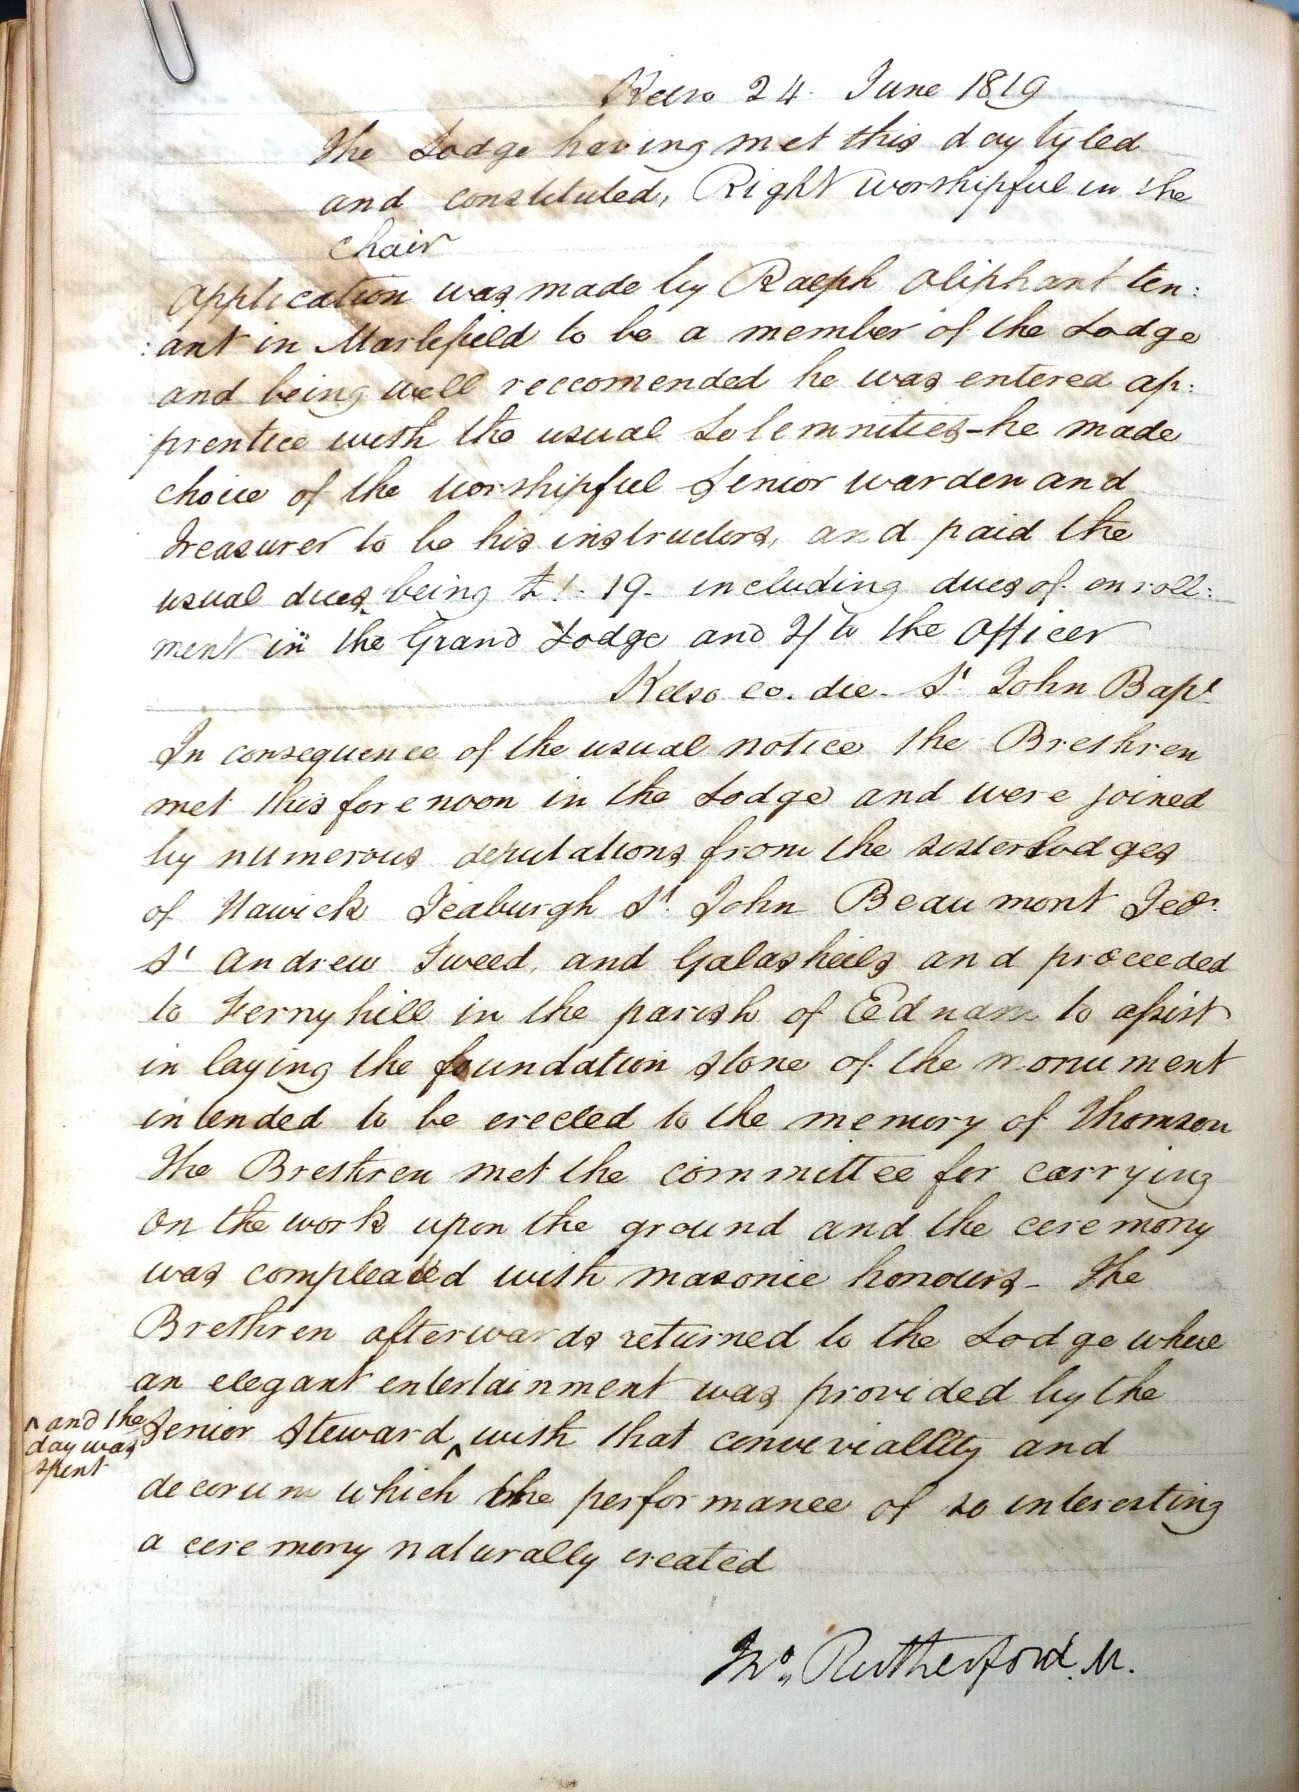 Kelso 24 June 1819
The Lodge having met this day tyled
and constituted, Right Worshipful in the
chair
Application was made by Ralph Oliphant ten:
:ant in Marlefield to be a member of the Lodge
and being well reccomended he was entered ap:
prentice with the usual Solemnities-he made
choice of the Worshipful Senior warden and
Treasurer to be his instructors, and paid the
usual dues being £1. 19. including dues of enroll:
ment in the Grand Lodge and 2/6 to the officer
Kelso eo. die. St. John Bapt.
In consequence of the usual notice the Brethren
met this forenoon in the Lodge and were joined
by numerous deputations from the sister Lodges
of Hawick Jeaburgh St. John Beaumont
St Andrew Tweed, and Galasheils and proceeded
to Fernyhill in the parish of Ednam to assist
in laying the foundation stone of the monument
intended to be erected to the memory of Thomson
The Brethren met the committee for carrying
on the work upon the ground and the ceremony
was compleated with masonic honours- The
Brethren afterwards returned to the Lodge where
an elegant entertainment was provided by the
Senior Steward ^ with that conviviallity and
^ and the
day was
spent
decorum which the performance of so interesting
a ceremony naturally created
Jno. Rutherford. M.